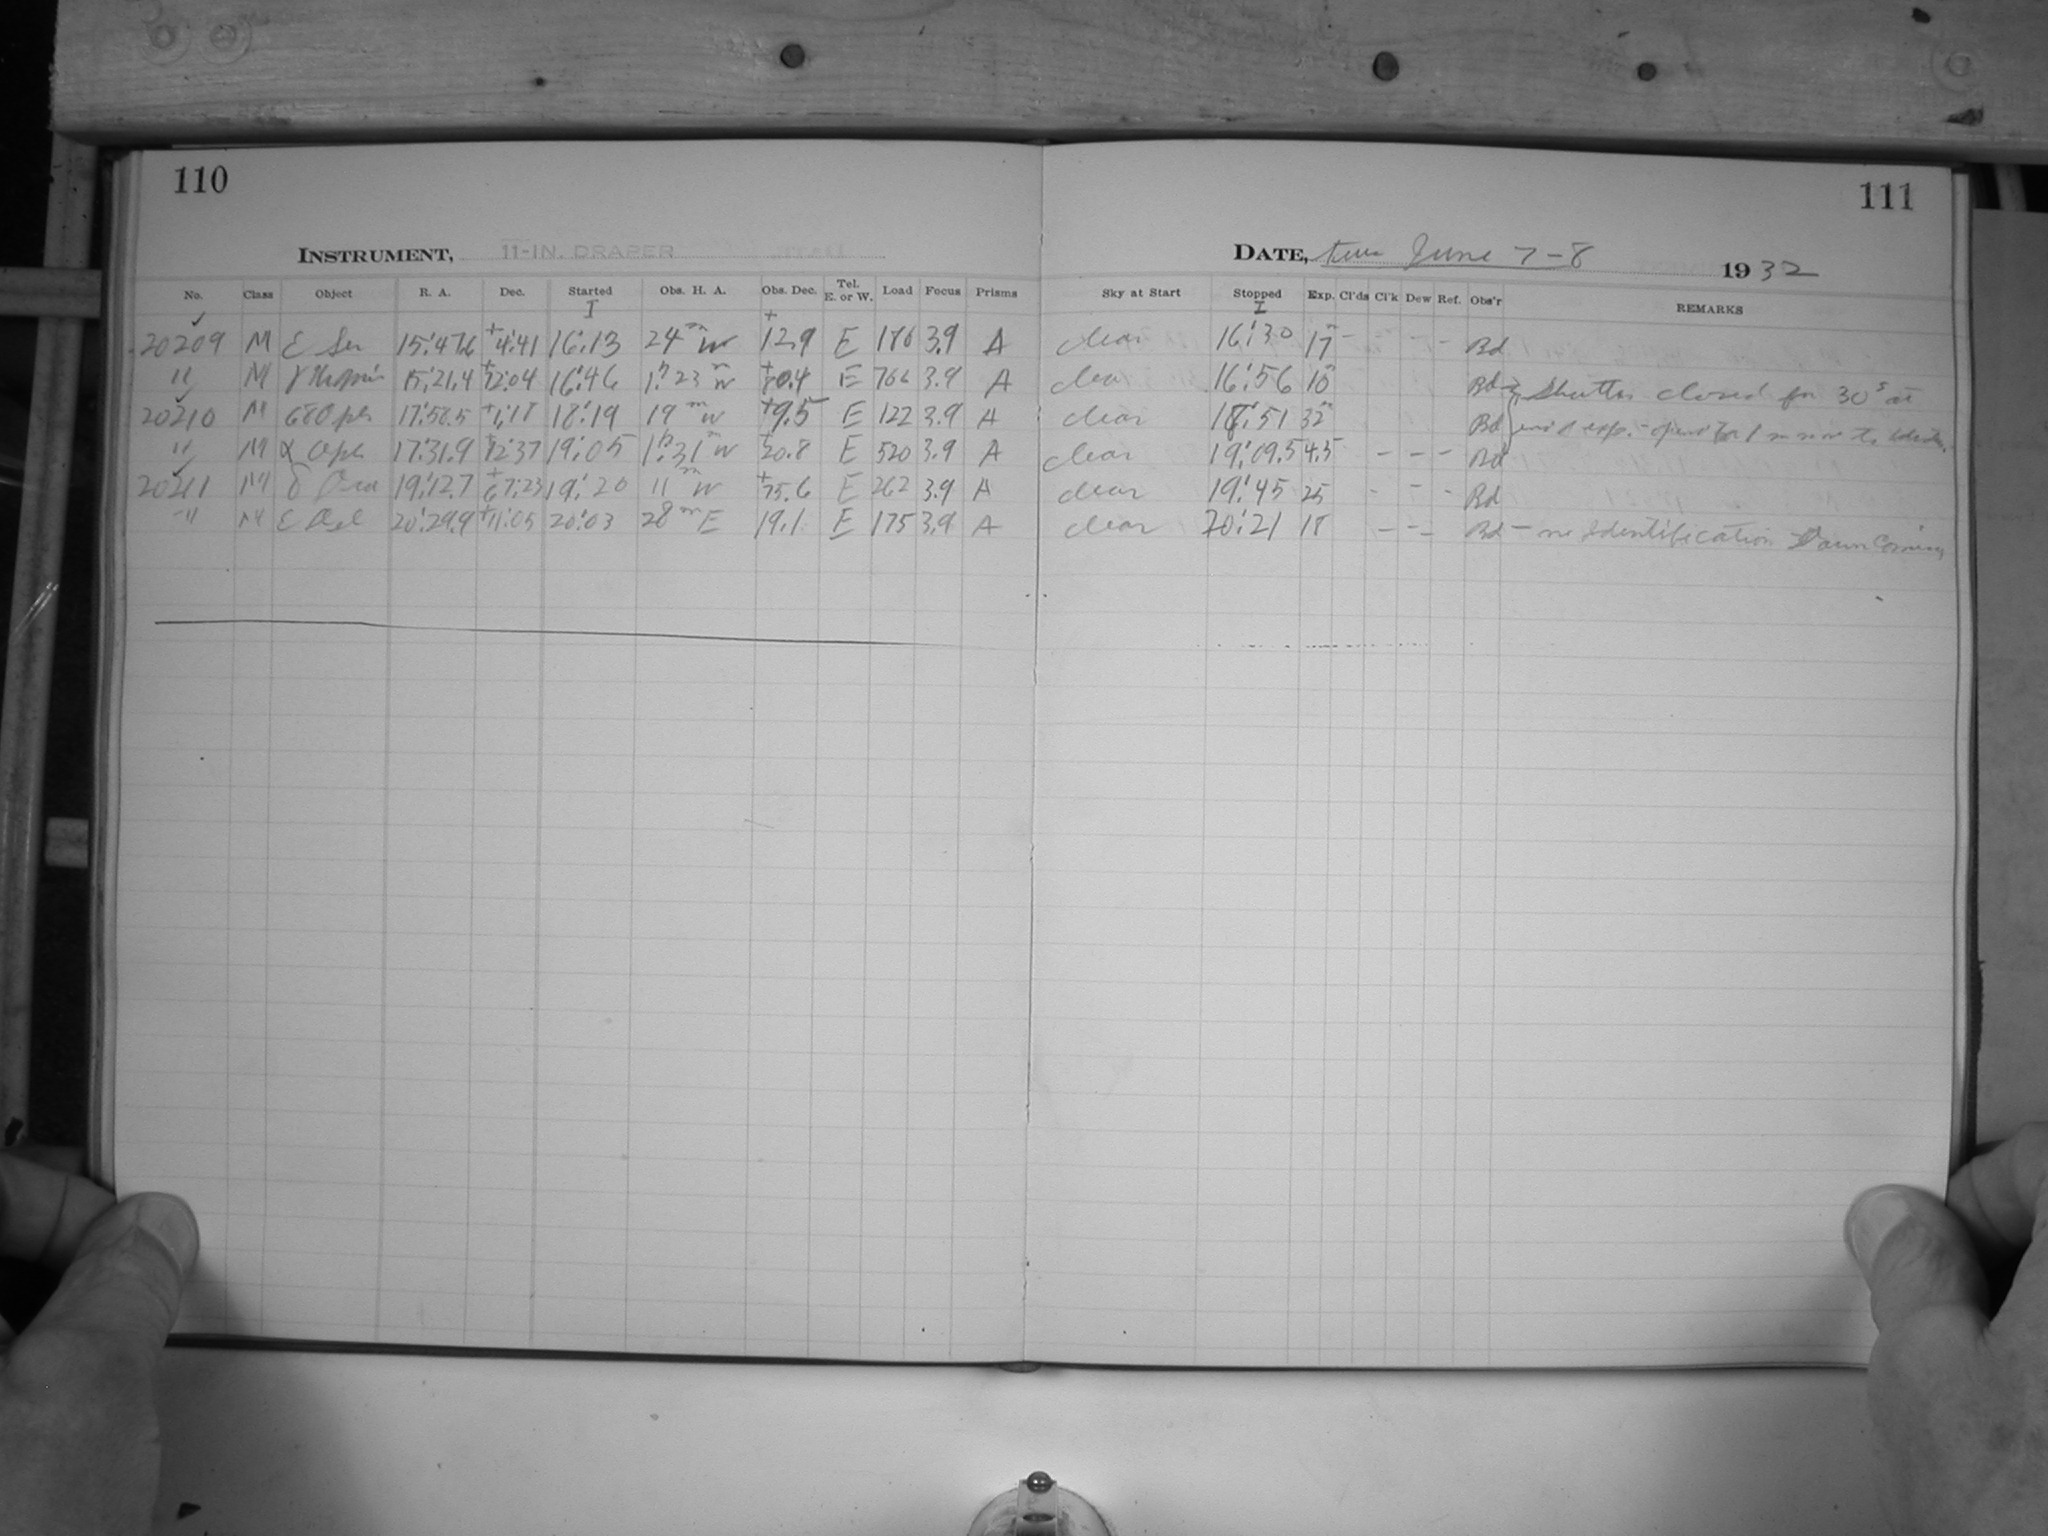 110
111
INSTRUMENT, 11-IN. DRAPER
DATE, June 7-8 1932
No. Class Object R. A. Dec. Started Obs. H. A. Obs. Dec. Tel. E. or W. Load Focus Prisms Sky at Start Stopped Exp. Cl'ds Cl'k Dew Ref. Obs'r REMARKS
I I
20209 M ε Ser 15:47.6 +4:41 16:13 24m W +12.9 E 176 3.9 A clear 16:30 17m - - - - Bd
" M γ 15:21.4 +72:04 16:46 1h 23m W +80.4 E 766 3.9 A clear 16:56 10 Bd Shutter closed for 30s at
20210 M 68 Oph 17:58.5 +1:18 18:19 19m W +9.5 E 122 3.9 A clear 18:51 32m Bd end exp.
" M α Oph 17:31.9 +12:37 19:05 1h 31m W +20.8 E 520 3.9 A clear 19:09.5 4.5 - - - Bd
20211 M δ Dra 19:12.7 +67:23 19:20 11m W +75.6 E 262 3.9 A clear 19:45 25 - - - Bd
" M ε Del 20:29.9 +11:05 20:03 28m E 19.1 E 175 3.9 A clear 20:21 18 - - - Bd - no identification Dawn Coming